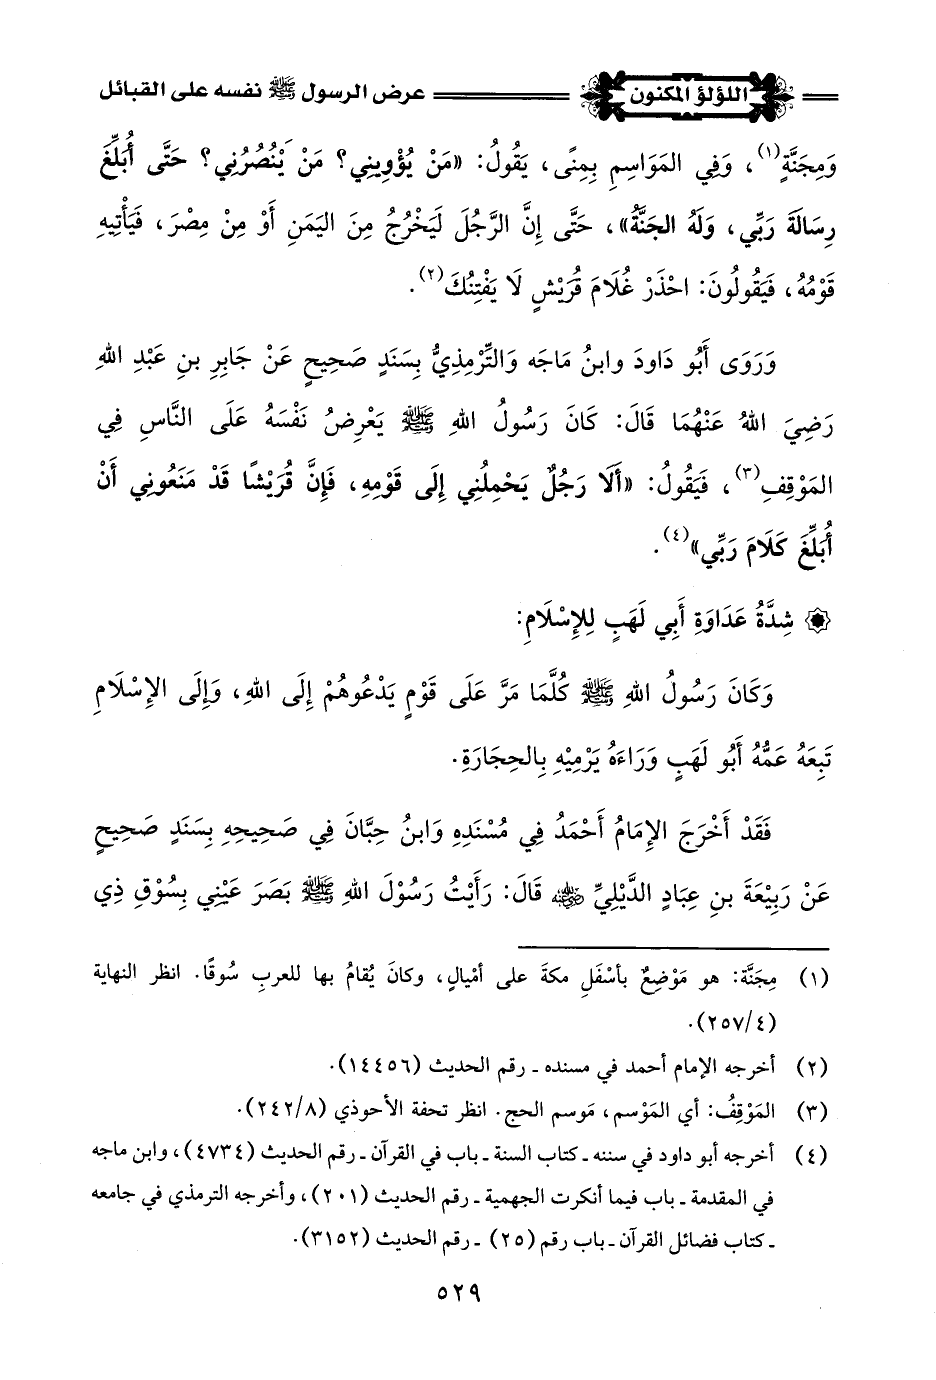 اللؤلؤ المكنون
عرض الرسول ﷺ نفسه على القبائل
وَمِجَنَّةٍ(١)، وَفِي المَوَاسِمِ بِمِنًى، يَقُولُ: «مَنْ يُؤْوِينِي؟ مَنْ يَنْصُرُنِي؟ حَتَّى أُبَلِّغَ
رِسَالَةَ رَبِّي، وَلَهُ الجَنَّةُ»، حَتَّى إِنَّ الرَّجُلَ لَيَخْرُجُ مِنَ اليَمَنِ أَوْ مِنْ مِصْرَ، فَيَأْتِيهِ
قَوْمُهُ، فَيَقُولُونَ: احْذَرْ غُلَامَ قُرَيْشٍ لَا يَفْتِنُكَ(٢).
وَرَوَى أَبُو دَاودَ وابنُ مَاجَه وَالتِّرْمِذِيُّ بِسَنَدٍ صَحِيحٍ عَنْ جَابِرِ بنِ عَبْدِ اللهِ
رَضِيَ اللهُ عَنْهُمَا قَالَ: كَانَ رَسُولُ اللهِ ﷺ يَعْرِضُ نَفْسَهُ عَلَى النَّاسِ فِي
المَوْقِفِ(٣)، فَيَقُولُ: «أَلَا رَجُلٌ يَحْمِلُنِي إِلَى قَوْمِهِ، فَإِنَّ قُرَيْشًا قَدْ مَنَعُونِي أَنْ
أُبَلِّغَ كَلَامَ رَبِّي»(٤).
۞ شِدَّةُ عَدَاوَةِ أَبِي لَهَبٍ لِلإِسْلَامِ:
وَكَانَ رَسُولُ اللهِ ﷺ كُلَّمَا مَرَّ عَلَى قَوْمٍ يَدْعُوهُمْ إِلَى اللهِ، وَإِلَى الإِسْلَامِ
تَبِعَهُ عَمُّهُ أَبُو لَهَبٍ وَرَاءَهُ يَرْمِيْهِ بِالحِجَارَةِ.
فَقَدْ أَخْرَجَ الإِمَامُ أَحْمَدُ فِي مُسْنَدِهِ وَابنُ حِبَّانَ فِي صَحِيحِهِ بِسَنَدٍ صَحِيحٍ
عَنْ رَبِيْعَةَ بنِ عِبَادٍ الدَّيْلِيِّ رضي الله عنه قَالَ: رَأَيْتُ رَسُوْلَ اللهِ ﷺ بَصَرَ عَيْنِي بِسُوْقِ ذِي
(١) مِجَنَّة: هو مَوْضِعٌ بأَسْفَلِ مكةَ على أمْيالٍ، وكانَ يُقامُ بها للعربِ سُوقًا. انظر النهاية
(٢٥٧/٤).
(٢) أخرجه الإمام أحمد في مسنده ـ رقم الحديث (١٤٤٥٦).
(٣) المَوْقِفُ: أي المَوْسم، مَوسم الحج. انظر تحفة الأحوذي (٢٤٢/٨).
(٤) أخرجه أبو داود في سننه ـ كتاب السنة ـ باب في القرآن ـ رقم الحديث (٤٧٣٤)، وابن ماجه
في المقدمة ـ باب فيما أنكرت الجهمية ـ رقم الحديث (٢٠١)، وأخرجه الترمذي في جامعه
ـ كتاب فضائل القرآن ـ باب رقم (٢٥) ـ رقم الحديث (٣١٥٢).
٥٢٩